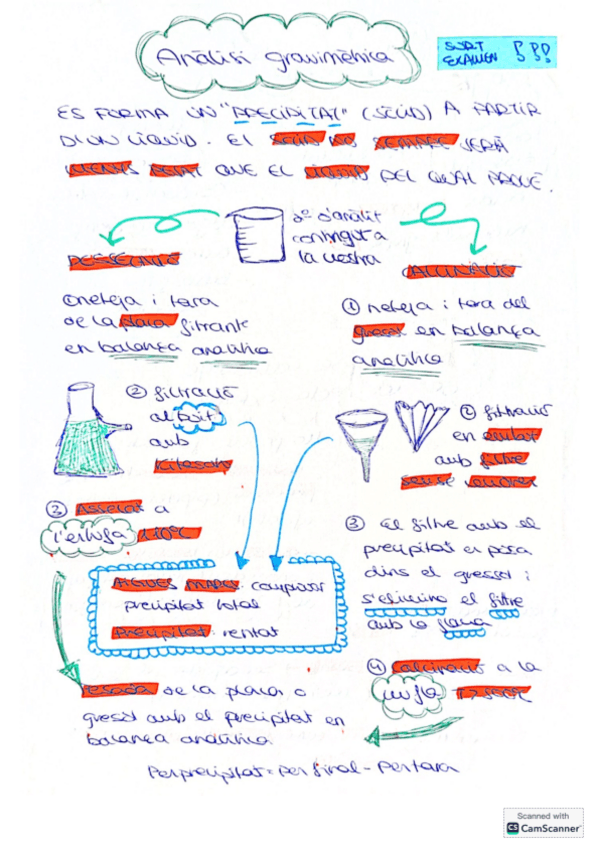 Anàlisi gravimètrica
SURT
EXAMEN !!!
ES FORMA UN "PRECIPITAT" (SÒLID) A PARTIR
D'UN LÍQUID. El SÒLID NO SEMPRE SERÀ
QUE EL LÍQUID DEL QUAL PROVÉ.
d'anàlit
contingut a
la mostra
DESSECACIÓ
CALCINACIÓ
① neteja i tara
de la placa filtrant
en balança analítica
① neteja i tara del
gresol en balança
analítica
② filtració
al buit
amb
kitasato
② filtració
en embut
amb filtre
sense cendres
③ Assecat a
l'estufa 110ºC
③ El filtre amb el
precipitat es posa
dins el gresol i
s'elimina el filtre
amb la flama
AIGÜES MARES: comprovar
precipitat total
Precipitat rentat
④ Calcinació a la
mufla T>500ºC
Pesada de la placa o
gresol amb el precipitat en
balança analítica
Pes precipitat = Pes final - Pes tara
Scanned with
CS CamScanner